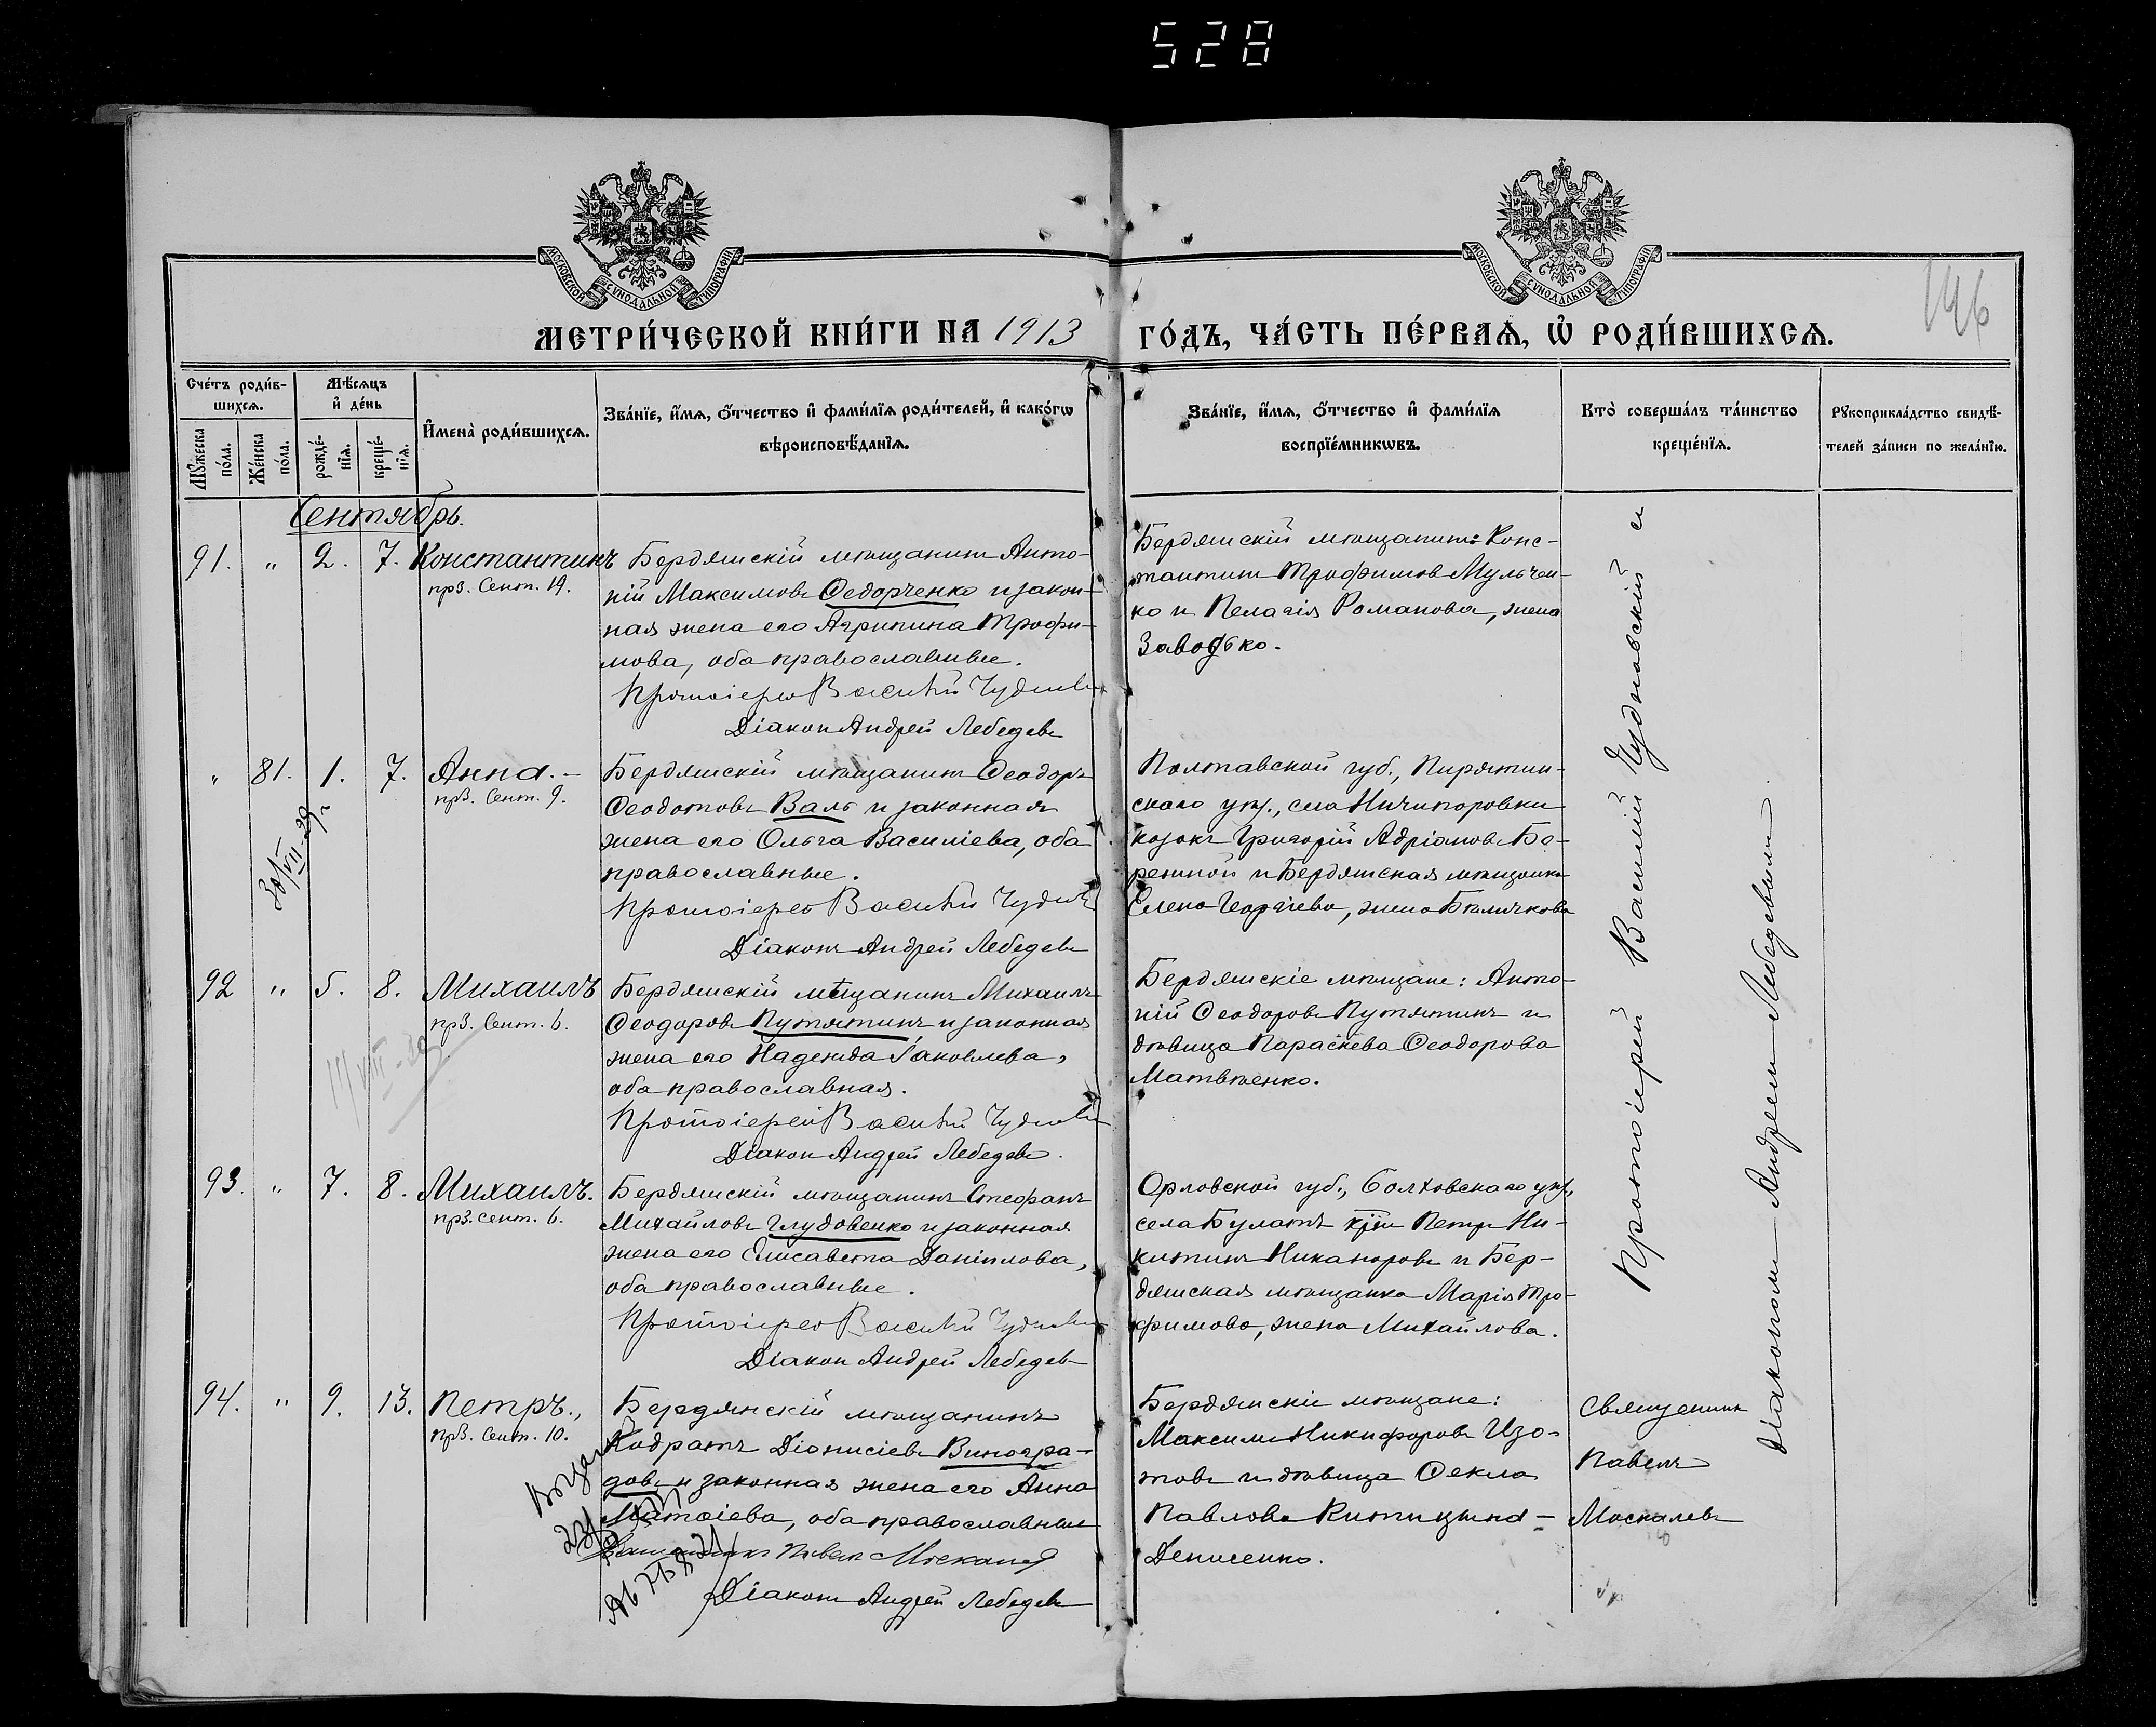 528
МОСКОВСКОЙ СѴНОДАЛЬНОЙ ТИПОГРАФІИ
МОСКОВСКОЙ СѴНОДАЛЬНОЙ ТИПОГРАФІИ
146
МЕТРИ́ЧЕСКОЙ КНИ́ГИ НА 1913
ГО́ДЪ, ЧА́СТЬ ПЕ́РВАѦ, Ѡ҆ РОДИ́ВШИХСѦ.
Сче́тъ роди́в-
шихсѧ.
Мѣ́сѧцъ
и҆ де́нь
Мꙋ́жеска
по́ла.
Же́нска
по́ла.
рожде́-
нїѧ.
креще́-
нїѧ.
И҆мена̀ роди́вшихсѧ.
Зва́нїе, и҆́мѧ, ѻ҆́тчество и҆ фами́лїѧ роди́телей, и҆ како́гѡ
вѣроисповѣ́данїѧ.
Зва́нїе, и҆́мѧ, ѻ҆́тчество и҆ фами́лїѧ
воспрїе́мникѡвъ.
Кто̀ соверша́лъ та́инство
креще́нїѧ.
Рꙋкоприкла́дство свидѣ́-
телей за́писи по жела́нїю.
Сентябрь.
91. " 2. 7. Константинъ
прз. Сент. 19.
Бердянскій мѣщанинъ Анто-
ній Максимовъ Ѳедорченко и закон-
ная жена его Агрипина Трофи-
мова, оба православные.
Протоіерей Василій
Діаконъ Андрей Лебедевъ
Бердянскій мѣщанинъ: Конс-
тантинъ Трофимовъ Мульчен-
ко и Пелагія Романова, жена
Заводько.
" 81. 1. 7. Анна. -
прз. Сент. 9.
30/VII-29 г.
Бердянскій мѣщанинъ Ѳеодоръ
Ѳеодотовъ Валь и законная
жена его Ольга Василіева, оба
православные.
Протоіерей Василій
Діаконъ Андрей Лебедевъ
Полтавской губ., Пирятин-
скаго уѣз., села Ничипоровки
козакъ Григорій Адріановъ Бе-
режной и Бердянская мѣщанка
Елена Георгіева, жена
92 " 5. 8. Михаилъ
прз. Сент. 6.
Бердянскій мѣщанинъ Михаилъ
Ѳеодоровъ Путятинъ и законная
жена его Надежда Іаковлева,
оба православная.
Протоіерей Василій
Діаконъ Андрей Лебедевъ.
Бердянскіе мѣщане: Анто-
ній Ѳеодоровъ Путятинъ и
дѣвица Параскева Ѳеодорова
Матвѣенко.
93. " 7. 8. Михаилъ.
прз. Сент. 6.
Бердянскій мѣщанинъ Стефанъ
Михайловъ Глудовенко и законная
жена его Елисавета Даніилова,
оба православные.
Протоіерей Василій
Діаконъ Андрей Лебедевъ
Орловской губ., Болховскаго уѣз.,
села Булатъ кр-нъ Петръ Ни-
китинъ Никаноровъ и Бер-
дянская мѣщанка Марія Тро-
фимова, жена Михайлова.
94. " 9. 13. Петръ.,
прз. Сент. 10.
Бердянскій мѣщанинъ
Кодратъ Діонисіевъ Виногра-
довъ и законная жена его Анна
Матѳіева, оба православные
Священникъ Павелъ Москалевъ
Діаконъ Андрей Лебедевъ
Бердянскіе мѣщане:
Максимъ Никифоровъ Изо-
товъ и дѣвица Ѳекла
Павлова
Денисенко.
Протоіерей Василій Чудновскій с
Діакономъ Андреемъ Лебедевымъ
Священникъ
Павелъ
Москалевъ